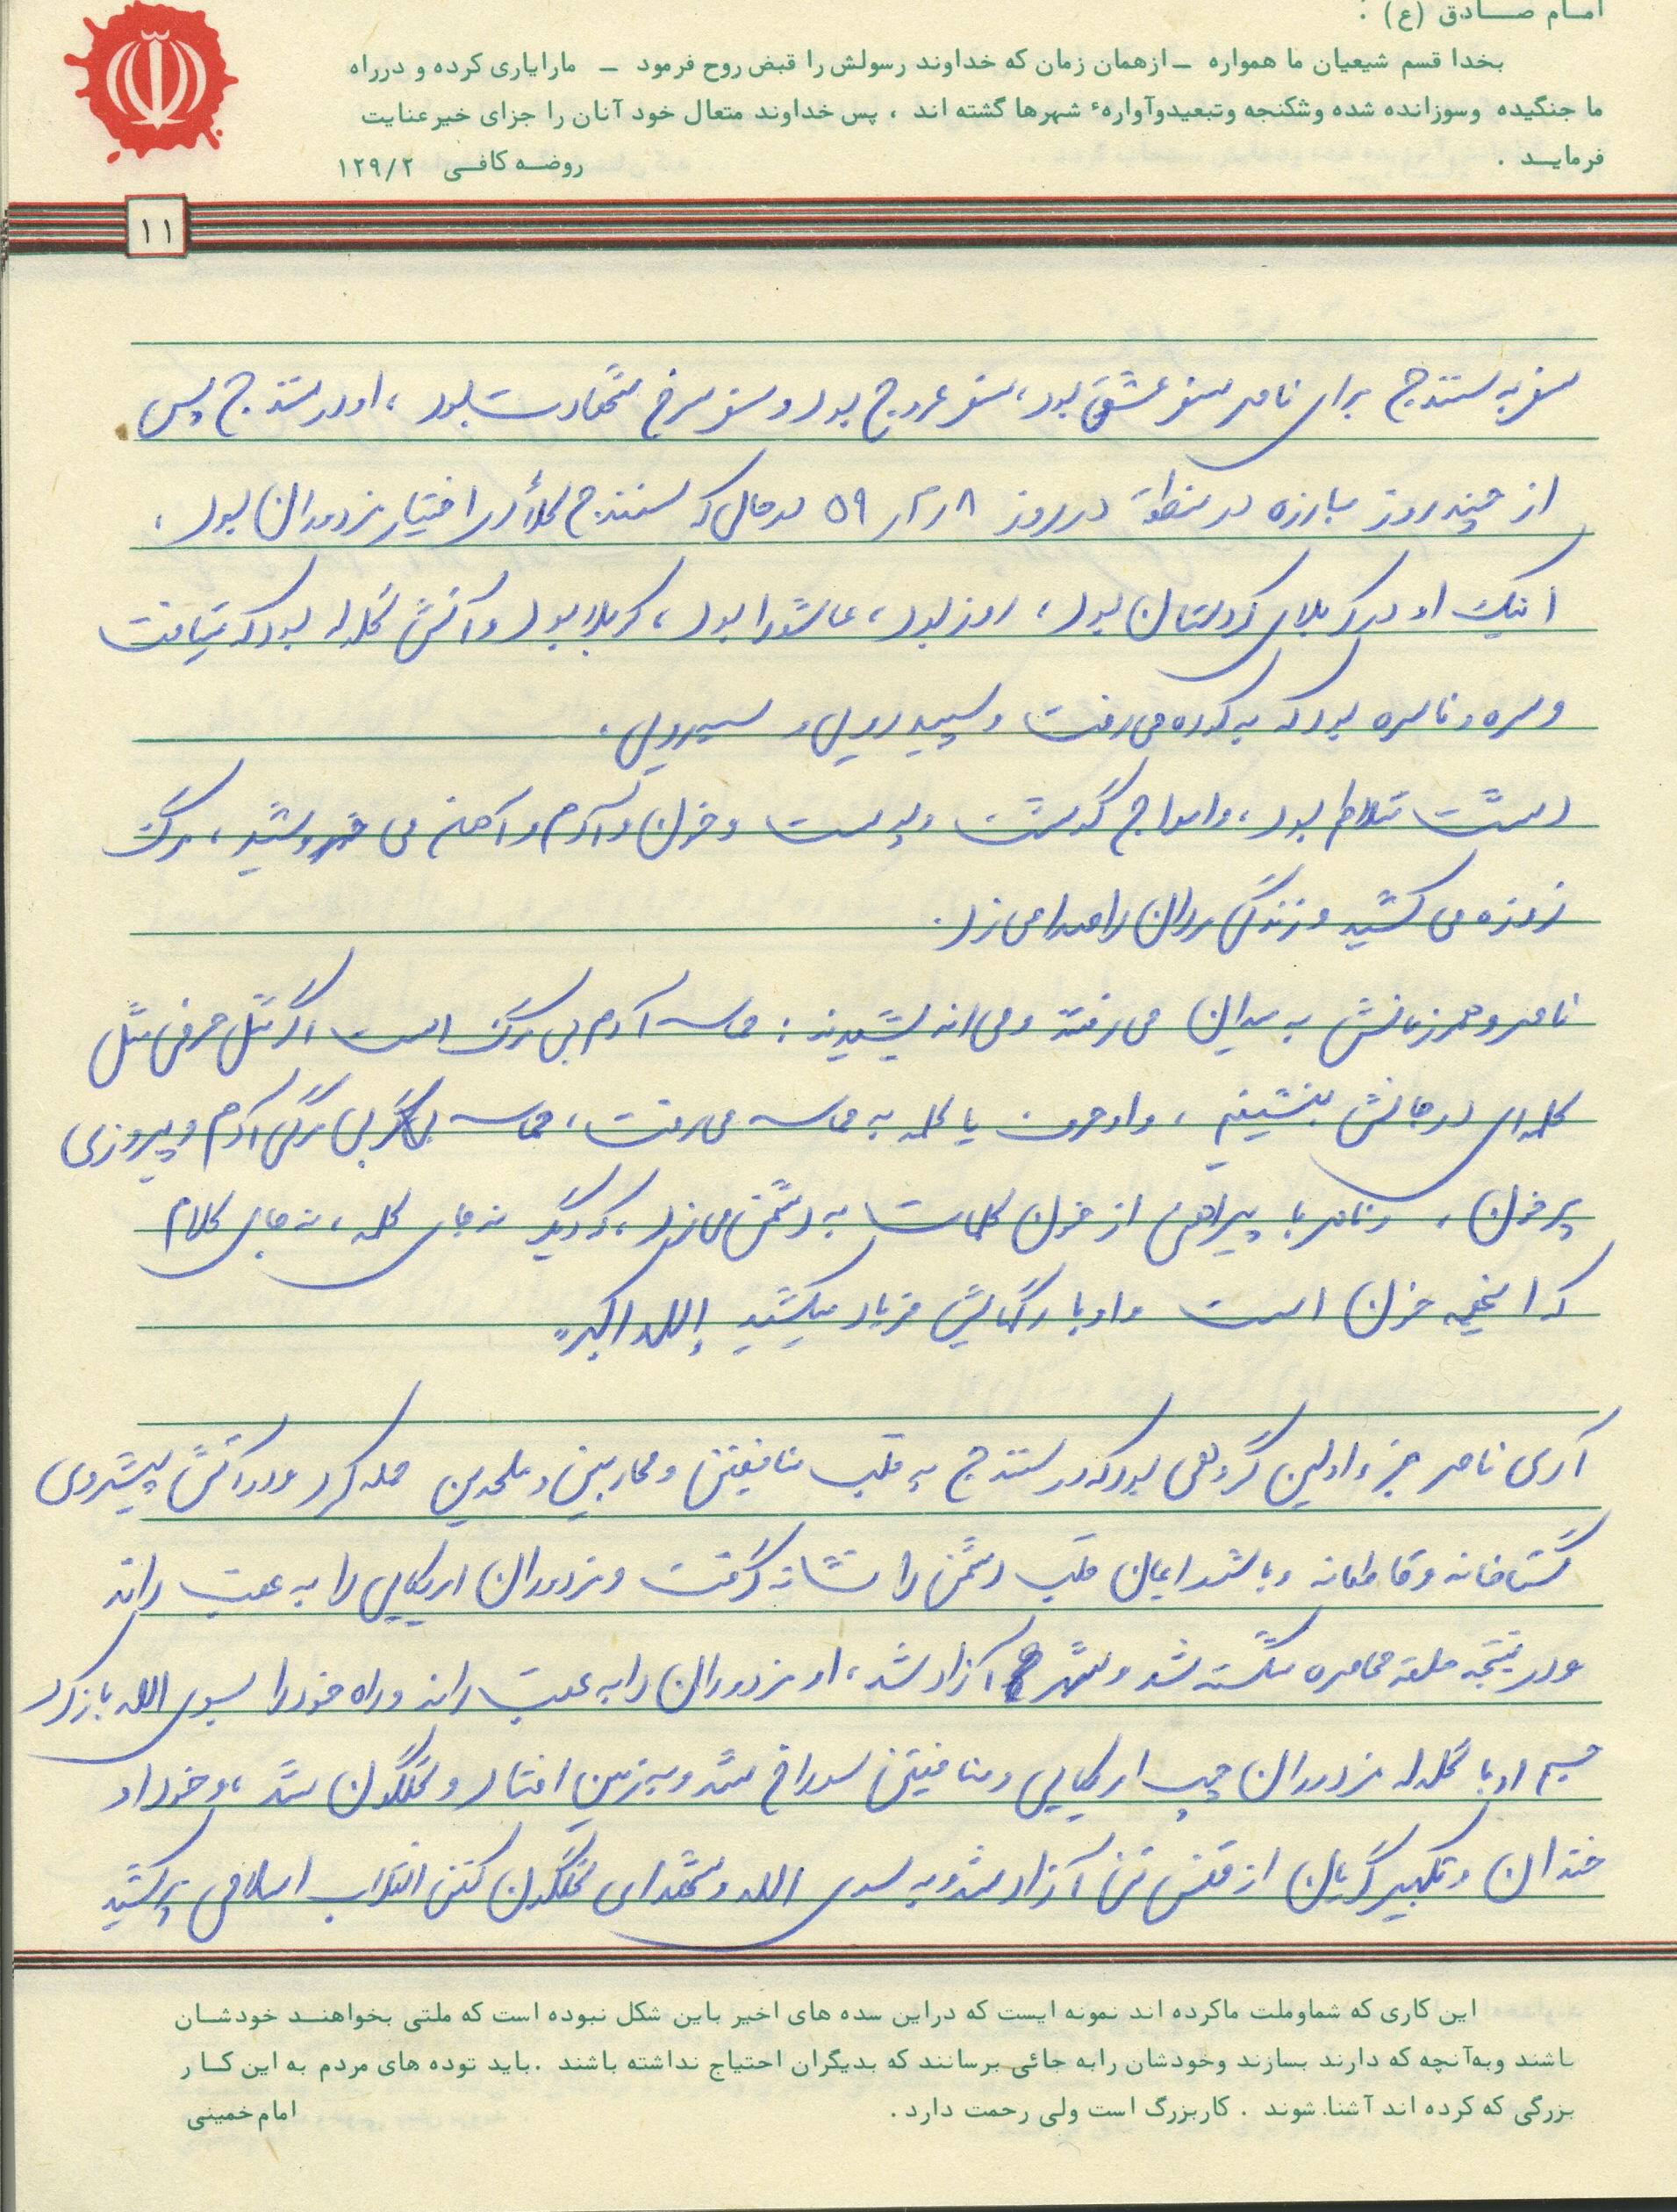 امام صادق (ع) :
بخدا قسم شیعیان ما همواره – ازهمان زمان که خداوند رسولش را قبض روح فرمود – مارایاری کرده و درراه
ما جنگیده وسوزانده شده وشکنجه وتبعیدوآوارهٔ شهرها گشته اند ، پس خداوند متعال خود آنان را جزای خیرعنایت
فرماید .
روضه کافی ۱۲۹/۲
۱۱
سفر به سنندج برای ناصر سفر عشق بود، سفر عروج بود و سفر سرخ شهادت بود ، او در سنندج پس
از چند روز مبارزه در منطقه در روز ۵۹ در حالی که سنندج کلاً در اختیار مزدوران بود ،
اینک او در کربلای کردستان بود ، روز بود ، عاشورا بود ، کربلا بود و آتش گلوله بود که میتافت
و سره و ناسره بود که به کوره می رفت و سپید روی و سیه روی .
دشت تلاطم بود ، و امواج گوشت و پوست و خون و آدم و آهن می خروشید ، مرگ
زوزه می کشید و زندگی مردان را صدا می زد .
ناصر و همرزمانش به میدان می رفتند و می اندیشیدند : حماسه آدم بی مرگ است اگر مثل حرفی مثل
کلمه ای در جانش بنشینیم ، و او حرف یا کلمه به حماسه می رفت ، حماسه بی مرگی آدم و پیروزی
پر خون ، و ناصر با پیراهنی از خون کلمات به دشمن می زد ، که دیگر نه جای کلمه ، نه جای کلام
که اینجمه خون است و او با رگهایش فریاد میکشید الله اکبر"
آری ناصر جزء اولین گروهی بود که در سنندج به قلب منافقین و محاربین و ملحدین حمله کرد و در آتش پیشروی
گستاخانه و قاطعانه و با سلاح ایمان قلب دشمن را نشانه گرفت و مزدوران امریکایی را به عقب راند
و در نتیجه حلقه محاصره شکسته شد و شهر آزاد شد ، او مزدوران را به عقب راند و راه خود را بسوی الله باز کرد
جسم او با گلوله مزدوران چپ امریکایی و منافقین سوراخ شد و به زمین افتاد و گلگون شد ، و خود او
خندان و تکبیر گویان از قفس تن آزاد شد و به سوی الله و شهدای گلگون کفن انقلاب اسلامی پر کشید
این کاری که شماوملت ماکرده اند نمونه ایست که دراین سده های اخیر باین شکل نبوده است که ملتی بخواهند خودشان
باشند وبه‌آنچه که دارند بسازند وخودشان رابه جائی برسانند که بدیگران احتیاج نداشته باشند . باید توده های مردم به این کار
بزرگی که کرده اند آشنا شوند . کاربزرگ است ولی رحمت دارد .
امام خمینی